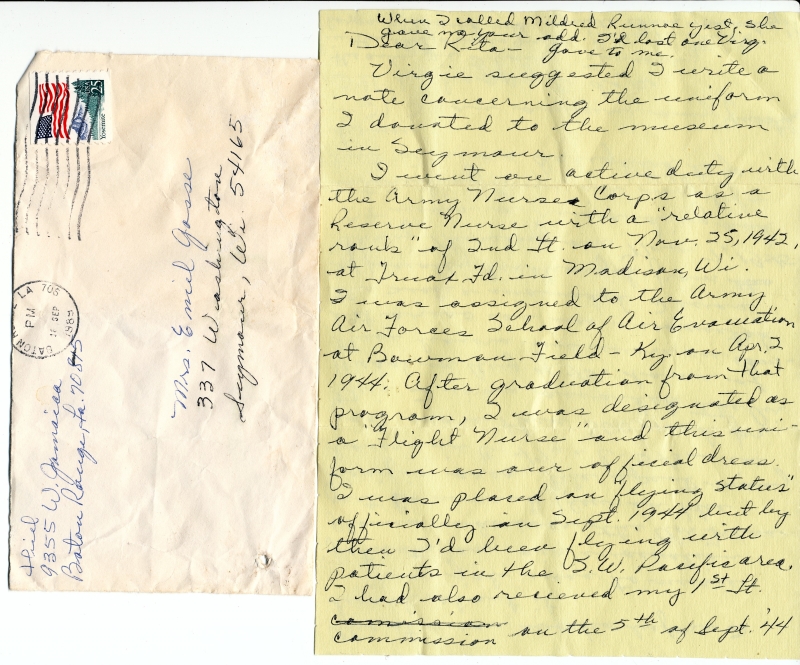 When I called Mildred Runnoe yest. she
gave me your add. I'd lost one Virg.
gave to me.
Dear Rita -
Virgie suggested I write a
note concerning the uniform
I donated to the museum
in Seymour.
I went on active duty with
the Army Nurse Corps as a
Reserve Nurse with a "relative
rank" of 2nd Lt. on Nov. 25, 1942,
at Truax Fd. in Madison, Wi.
I was assigned to the Army
Air Forces School of Air Evacuation
at Bowman Field - Ky. on Apr. 2
1944. After graduation from that
program, I was designated as
a "Flight Nurse" and this uni-
form was our official dress.
I was placed on "flying status"
officially in Sept. 1944 but by
then I'd been flying with
patients in the S.W. Pacific area.
I had also recieved my 1st Lt.
comission
commission on the 5th of Sept. '44
25
USA
Yosemite
BATON LA 708
PM
SEP
1989
9355 W. Jamaica
Baton Rouge, La. 70815
Mrs. Emil Gosse
337 Washington
Seymour, Wi. 54165